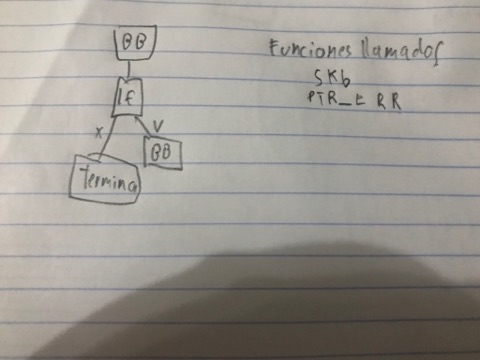 BB
If
X
V
BB
Termina
Funciones llamados
SKb
PTR_ERR